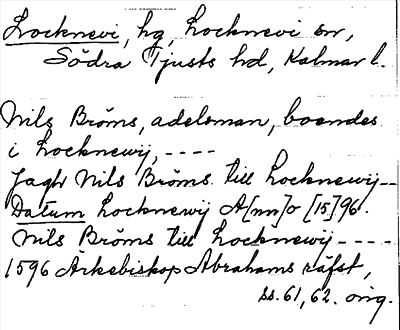 Locknevi, hg, Locknevi sn,
Södra Tjusts hd, Kalmar l.
Nils Bröms, adelsman, boendes
i Locknewij, ----
Jagh Nils Bröms till Locknewij--
Datum Locknewij A[nn]o [15]96.
Nils Bröms till Locknewij ----
1596 Ärkebiskop Abrahams räfst,
ss. 61, 62. orig.